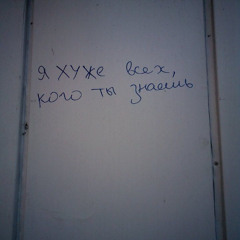 я хуже всех,
кого ты знаешь